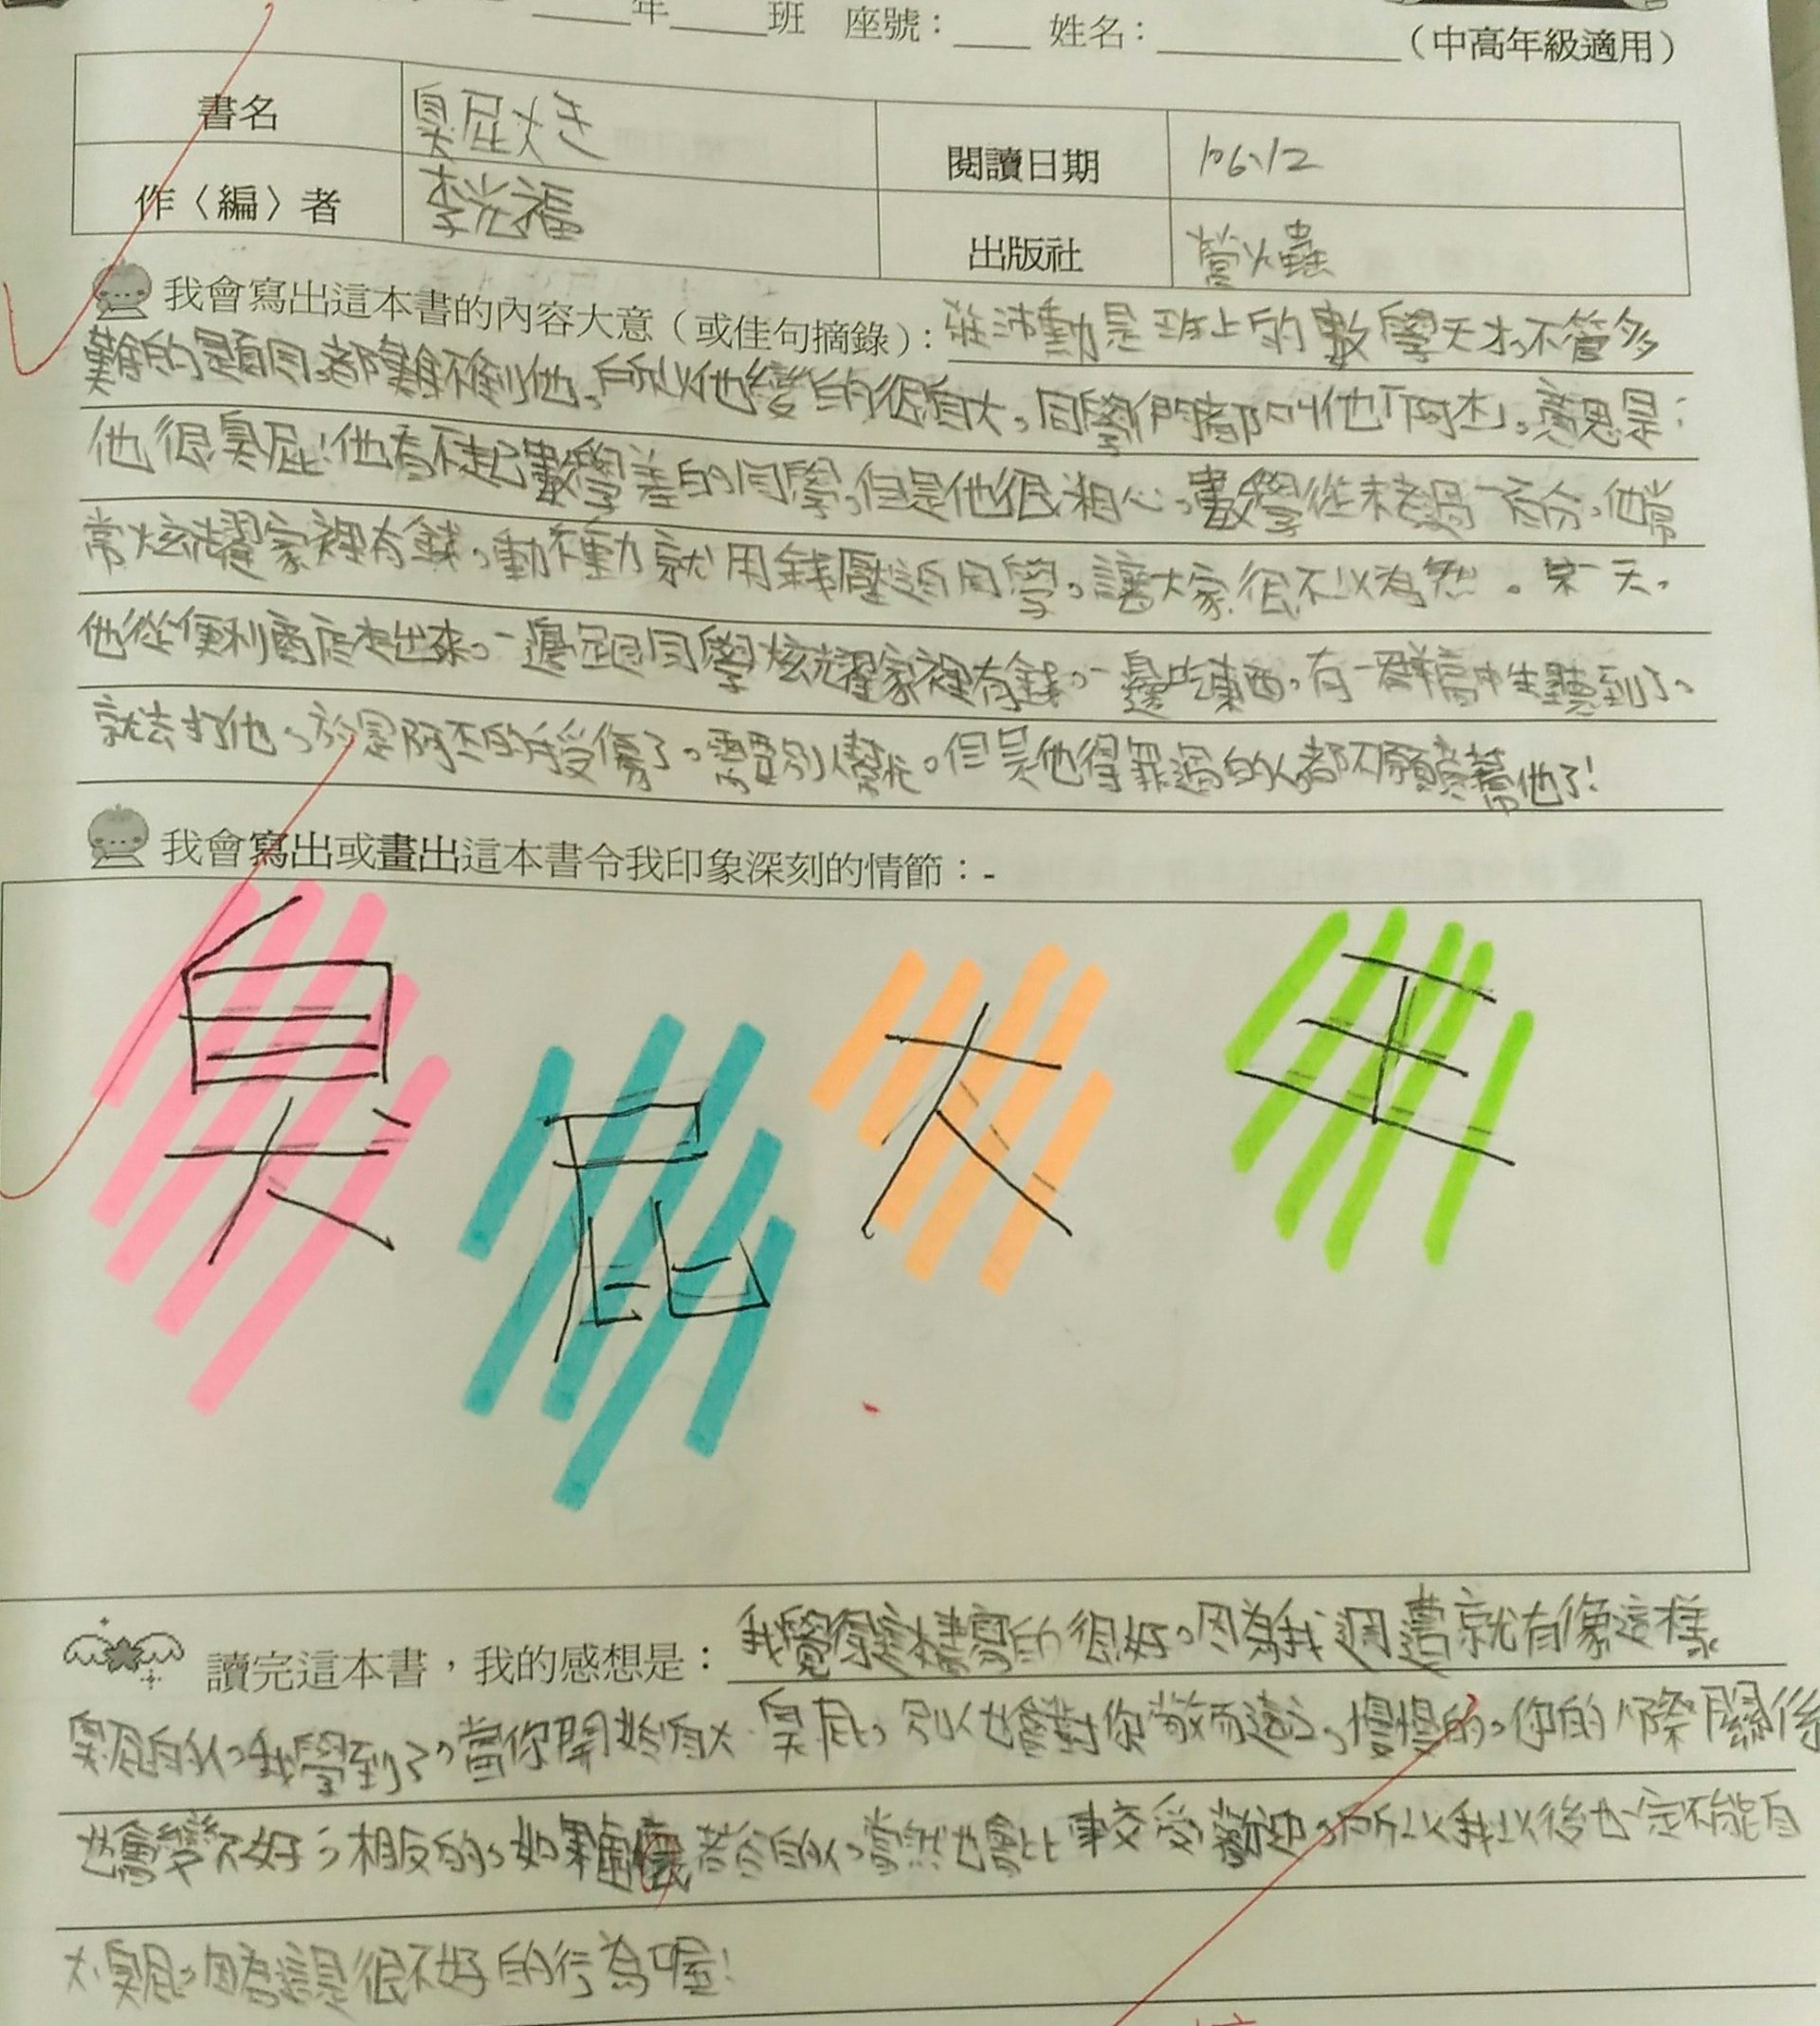 年 班 座號： 姓名： （中高年級適用）
書名 臭屁大王 閱讀日期 106.12
作〈編〉者 李光福 出版社 螢火蟲
我會寫出這本書的內容大意（或佳句摘錄）：莊沛勳是班上的數學天才，不管多
難的題目，都難不倒他，所以他變的很自大，同學們都叫他「阿杰」，意思是：
他很臭屁！他看不起數學差的同學，但是他很粗心，數學從未考過一百分，他常
常炫耀家裡有錢，動不動就用錢壓迫同學，讓大家很不以為然。某一天，
他從便利商店走出來，一邊跟同學炫耀家裡有錢，一邊吃東西，有一群高中生聽到了，
就去打他，於是阿杰的手受傷了，需要別人幫忙。但是他得罪過的人都不願意幫他了！
我會寫出或畫出這本書令我印象深刻的情節：-
臭屁大王
讀完這本書，我的感想是：我覺得這本書寫的很好，因為我週遭就有像這樣
臭屁的人，我學到了，當你開始自大、臭屁，別人也會對你敬而遠之，慢慢的，你的人際關係
也會變不好；相反的，如果虛懷若谷的人，當然也會比較受歡迎，所以我以後也一定不能自
大、臭屁，因為這是很不好的行為喔！